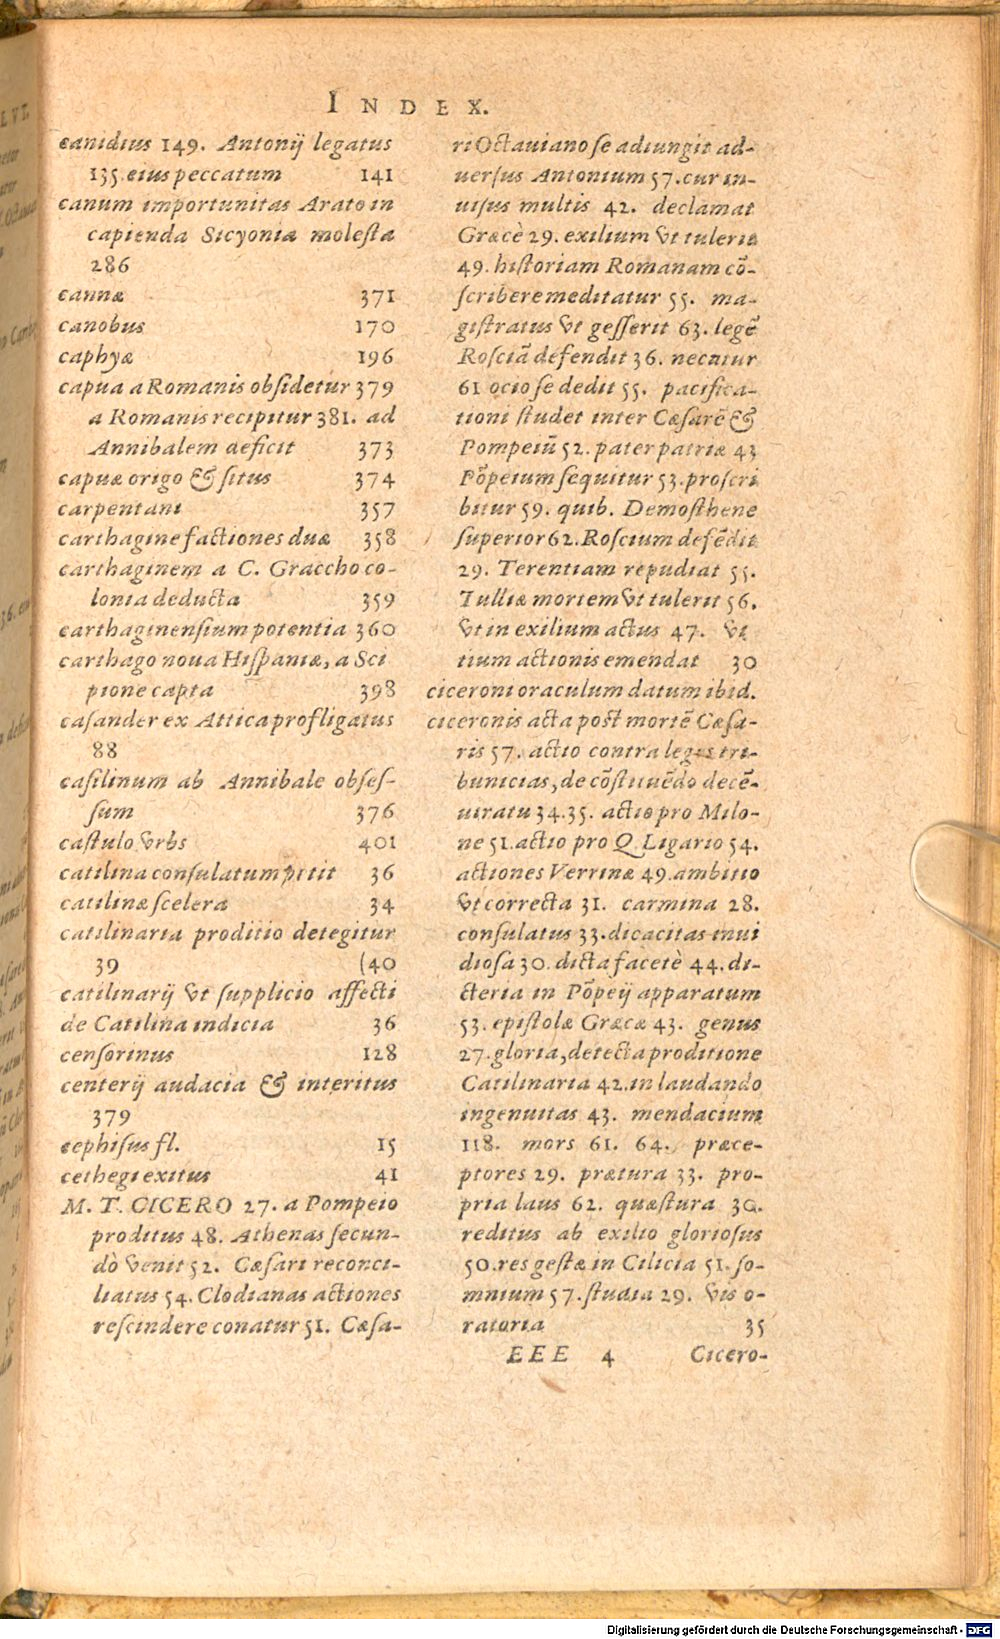 INDEX.
canidius 149. Antonij legatus
135. eius peccatum 141
canum importunitas Arato in
capienda Sicyonia molesta
286
cannæ 371
canobus 170
caphyæ 196
capua a Romanis obsidetur 379
a Romanis recipitur 381. ad
Annibalem deficit 373
capuæ origo & situs 374
carpentani 357
carthagine factiones duæ 358
carthaginem a C. Graccho co-
lonia deducta 359
carthaginensium potentia 360
carthago noua Hispaniæ, a Sci
pione capta 398
casander ex Attica profligatus
88
casilinum ab Annibale obses-
sum 376
castulo vrbs 401
catilina consulatum petit 36
catilinæ scelera 34
catilinaria proditio detegitur
39 (40
catilinarij vt supplicio affecti
de Catilina indicia 36
censorinus 128
centerij audacia & interitus
379
cephisus fl. 15
cethegi exitus 41
M. T. CICERO 27. a Pompeio
proditus 48. Athenas secun-
dò venit 52. Cæsari reconci-
liatus 54. Clodianas actiones
rescindere conatur 51. Cæsa-
ri Octauiano se adiungit ad-
uersus Antonium 57. cur in-
uisus multis 42. declamat
Græcè 29. exilium vt tulerit
49. historiam Romanam cō-
scribere meditatur 55. ma-
gistratus vt gesserit 63. legē
Rosciā defendit 36. necatur
61 ocio se dedit 55. pacifica-
tioni studet inter Cæsarē &
Pompeiū 52. pater patriæ 43
Pōpeium sequitur 53. proscri
bitur 59. quib. Demosthene
superior 62. Roscium defēdit
29. Terentiam repudiat 55.
Tulliæ mortem vt tulerit 56.
vt in exilium actus 47. vi
tium actionis emendat 30
ciceroni oraculum datum ibid.
ciceronis acta post mortē Cæsa-
ris 57. actio contra leges tri-
bunicias, de cōstituēdo decē-
uiratu 34. 35. actio pro Milo-
ne 51. actio pro Q. Ligario 54.
actiones Verrinæ 49. ambitio
vt correcta 31. carmina 28.
consulatus 33. dicacitas inui
diosa 30. dicta facetè 44. di-
cteria in Pōpeij apparatum
53. epistolæ Græcæ 43. genus
27. gloria, detecta proditione
Catilinaria 42. in laudando
ingenuitas 43. mendacium
118. mors 61. 64. præce-
ptores 29. prætura 33. pro-
pria laus 62. quæstura 30.
reditus ab exilio gloriosus
50. res gestæ in Cilicia 51. so-
mnium 57. studia 29. vis o-
ratoria 35
EEE 4 Cicero-
Digitalisierung gefördert durch die Deutsche Forschungsgemeinschaft - DFG